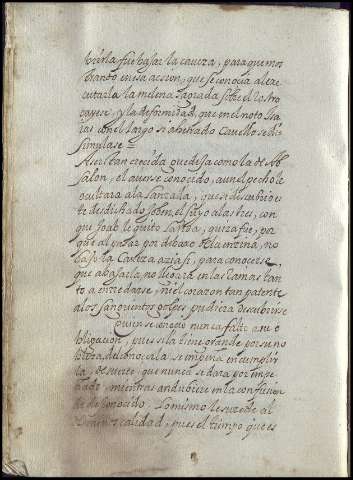 huirla fue bajar la caueza, para que mos
trando en esa accion, que se conocia al exe
cutarla la melena sagrada sobre el rostro
cayese, y la deformidad, que en el noto lla
ras con el largo si aliñado Cauello se di
simulase =
A ser tan crecida quedesa como la de Ab
salon, el auerse conocido, aun el pecho le
ocultara a la lanzada, que se descubrio es
te desdichado Joben, el suyo a las tres, con
que Joab le quito la vida, quiza fue, por
que al pasar por debaxo de la encina, no
bajo la Caueza azia si, para conocerse,
que a bajarla no llegara en las ramas tan
to a enredarse, ni el corazon tan patente
a los sangrientos golpes pudiera descubrirse
quien se conocio nunca faltò a su o
bligacion, pues si la tiene grande por su no
bleza, de conocerla se empeña en cumplir
la, de suerte, que nunca se dara por empe
ñado, mientras andubiere en la confusion
de desconocido. Lo mismo le sucede al
de calidad, pues el tiempo que es